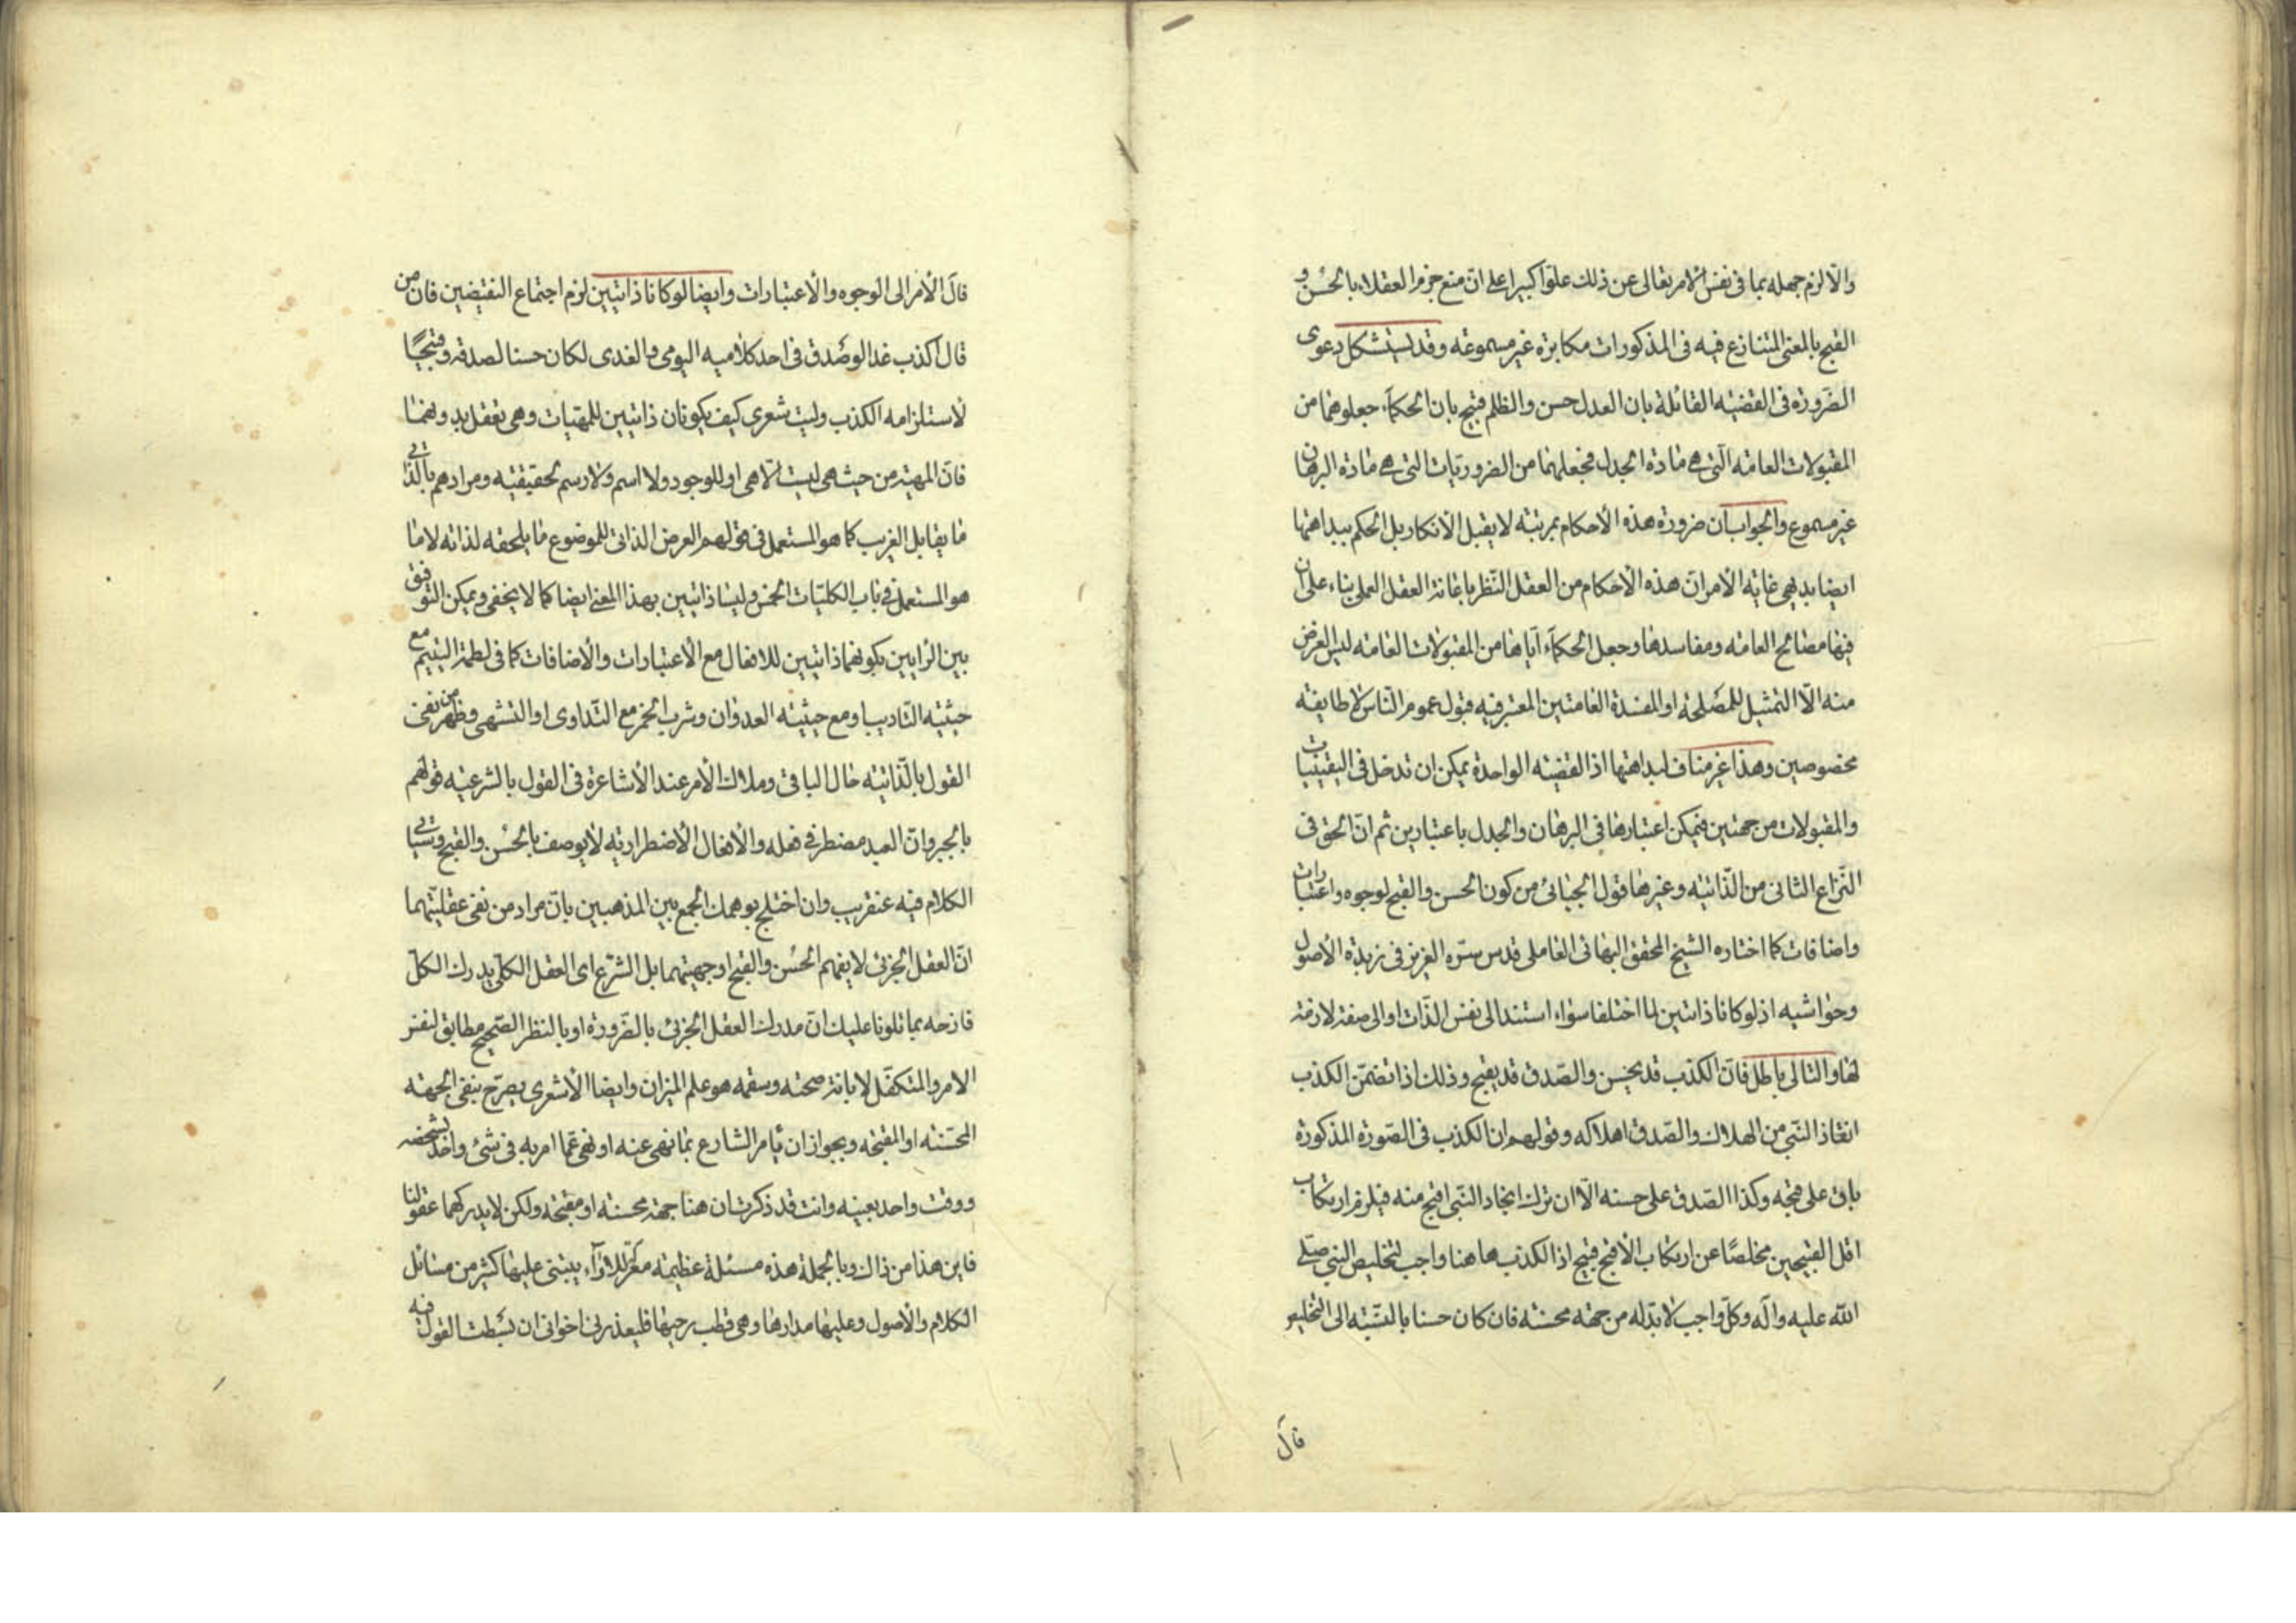 والّا لزم جهله بما فى نفس الامر تعالى عن ذلك علوّا كبيرا على انّ منع جزم العقلاء بالحُسْن و
القبح بالمعنى المتنازع فيه فى المذكورات مكابرة غير مسموعة وقد يستشكل دعوى
الضّرورة فى القضيّة القائلة بان العدل حسن والظلم قبيح بان الحكمآء جعلوهما من
المقبولات العامّه الّتى هى مادة الجدل فجعلهما من الضروريّات التى هى مادّة البرهان
غير مسموع والجواب ان ضرورة هذه الأحكام بمرتبة لا يقبل الأنكار بل الحكم ببداهتها
ايضا بديهى غاية الأمر انّ هذه الأحكام من العقل النّظرى باعانة العقل العملى بناء على ان
فيها مصالح العامّه ومفاسدها وجعل الحكمآء ايّاها من المقبولات العامّه ليس الغرض
منه الّا التمثيل للمصلحة او المفسدة العامتين المعتبر فيه قبول عموم النّاس لا طايفة
مخصوصين وهذا غير مناف لبداهتها اذ القضيّة الواحدة يمكن ان تدخل فى اليقينيات
والمقبولات من جهتين فيمكن اعتبارها فى البرهان والجدل باعتبارين ثم انّ الحق فى
النّزاع الثانى من الذّاتيّه وغيرها قول الجبّائى من كون الحسن والقبح لوجوه واعتبارات
واضافات كما اختاره الشيخ المحقق البهائى العاملى قدس سرّه العزيز فى زبدة الأصول
وحواشيه اذ لو كانا ذاتيين لما اختلفا سواء استندا الى نفس الذّات او الى صفة لازمة
لها والتالى باطل فانّ الكذب قد يحسن والصّدق قد يقبح وذلك اذا تضمّن الكذب
انقاذ النّبى من الهلاك والصّدق اهلاكه وقولهم ان الكذب فى الصّورة المذكورة
باق على قبحه وكذا الصّدق على حسنه الّا ان ترك انجاد النّبى اقبح منه فيلزم ارتكاب
اقل القبيحين مخلصًا عن ارتكاب الأقبح قبيح اذ الكذب ها هنا واجب لتخليص النبى صلى
الله عليه وآله وكلّ واجب لا بدّ له من جهة محسنة فان كان حسنا بالنسبة الى التخليص
قال
قال الأمر الى الوجوه والأعتبارات وايضا لو كانا ذاتيين لزم اجتماع النقيضين فان من
قال اكذب غدا لو صَدق فى احد كلاميه اليومى والغدى لكان حسنا لصدقه وقبيحًا
لأستلزامه الكذب وليت شعرى كيف يكونان ذاتيين للمهيّات وهى تعقل بدونهما
فانّ المهيّة من حيث هى ليست الّا هى اولا للوجود ولا اسم ولا رسم لحقيقيته ومرادهم بالذّاتى
ما يقابل الغريب كما هو المستعمل فى قولهم العرض الذاتى للموضوع ما يلحقه لذاته لا ما
هو المستعمل فى باب الكليّات الخمس وليسا ذاتيين بهذا المعنى ايضا كما لا يخفى ويمكن التوفيق
بين الرّايين بكونهما ذاتيين للافعال مع الأعتبارات والأضافات كما فى لطمة اليتيم مع
حيثيّه التّاديب او مع حيثيّه العدوان وشرب الخمر مع التّداوى او التشهى وظهر من نفى
القول بالذّاتيّه حال الباقى وملاك الأمر عند الأشاعرة فى القول بالشرعيه قولهم
بالجبر وانّ العبد مضطر فى فعله والأفعال الأضطراريّه لا يوصف بالحُسْن والقبح وسيأتى
الكلام فيه عنقريب وان اختلج بوهمك الجمع بين المذهبين بانّ مراد من نفى عقليّتهما
انّ العقل الجزئى لا يفهم الحُسْن والقبح او جهتيهما بل الشّرع اى العقل الكلّى يدرك الكلّ
فازحه بما تلونا عليك انّ مدرك العقل الجزئى بالضّرورة او بالنظر الصّحيح مطابق لنفس
الامر والمتكفّل لابانة صحته وسقمه هو علم الميزان وايضا الأشعرى يصرّح بنفى الجهة
المحسّنه او المقبّحه وبجواز ان يأمر الشارع بما نهى عنه او نهى عمّا امر به فى شئ واحد شخصى
ووقت واحد بعينه وانت قد ذكرت ان هنا جهة محسنة او مقبّحه ولكن لا يدركهما عقولنا
فاين هذا من ذاك وبالجملة هذه مسئلة عظيمة معترك للارآء يبتنى عليها كثير من مسائل
الكلام والأصول وعليها مدارها وهى قطب رحيها فليعذرنى اخوانى ان بسّطت القول فيه